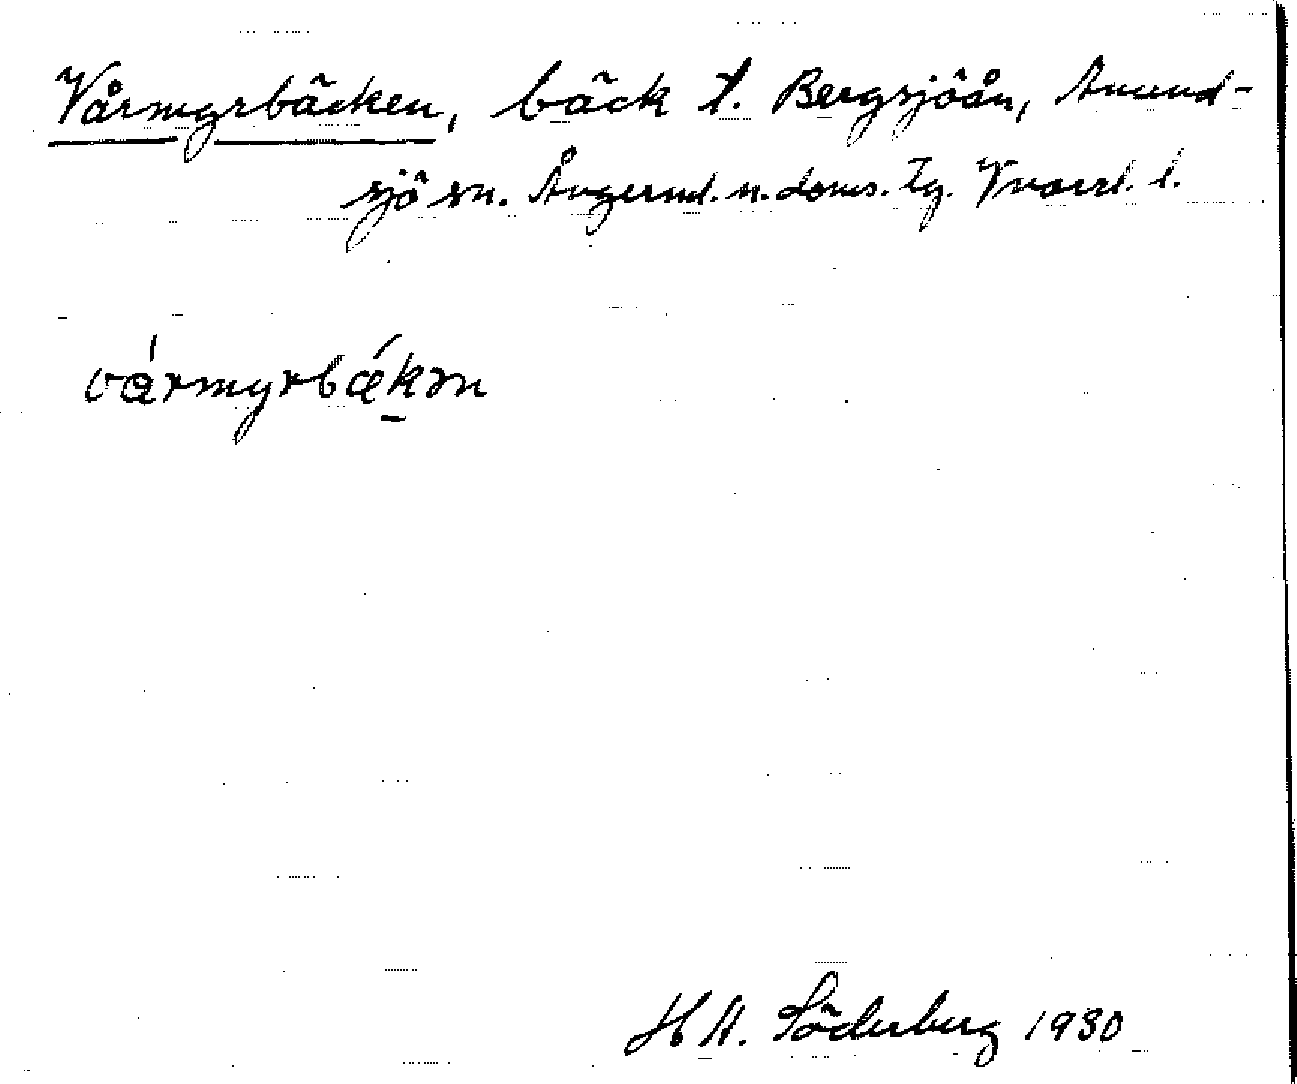 Vårmyrbäcken, bäck t. Bergsjöån, Anund-
sjö sn. Ångerml. n. doms. tg. Vnorrl. l.
vármyrbǽkən
H A. Söderberg 1930